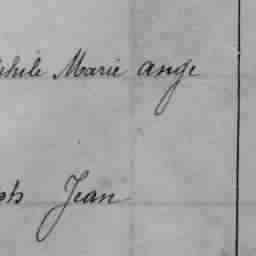 phile Marie ange
ph Jean